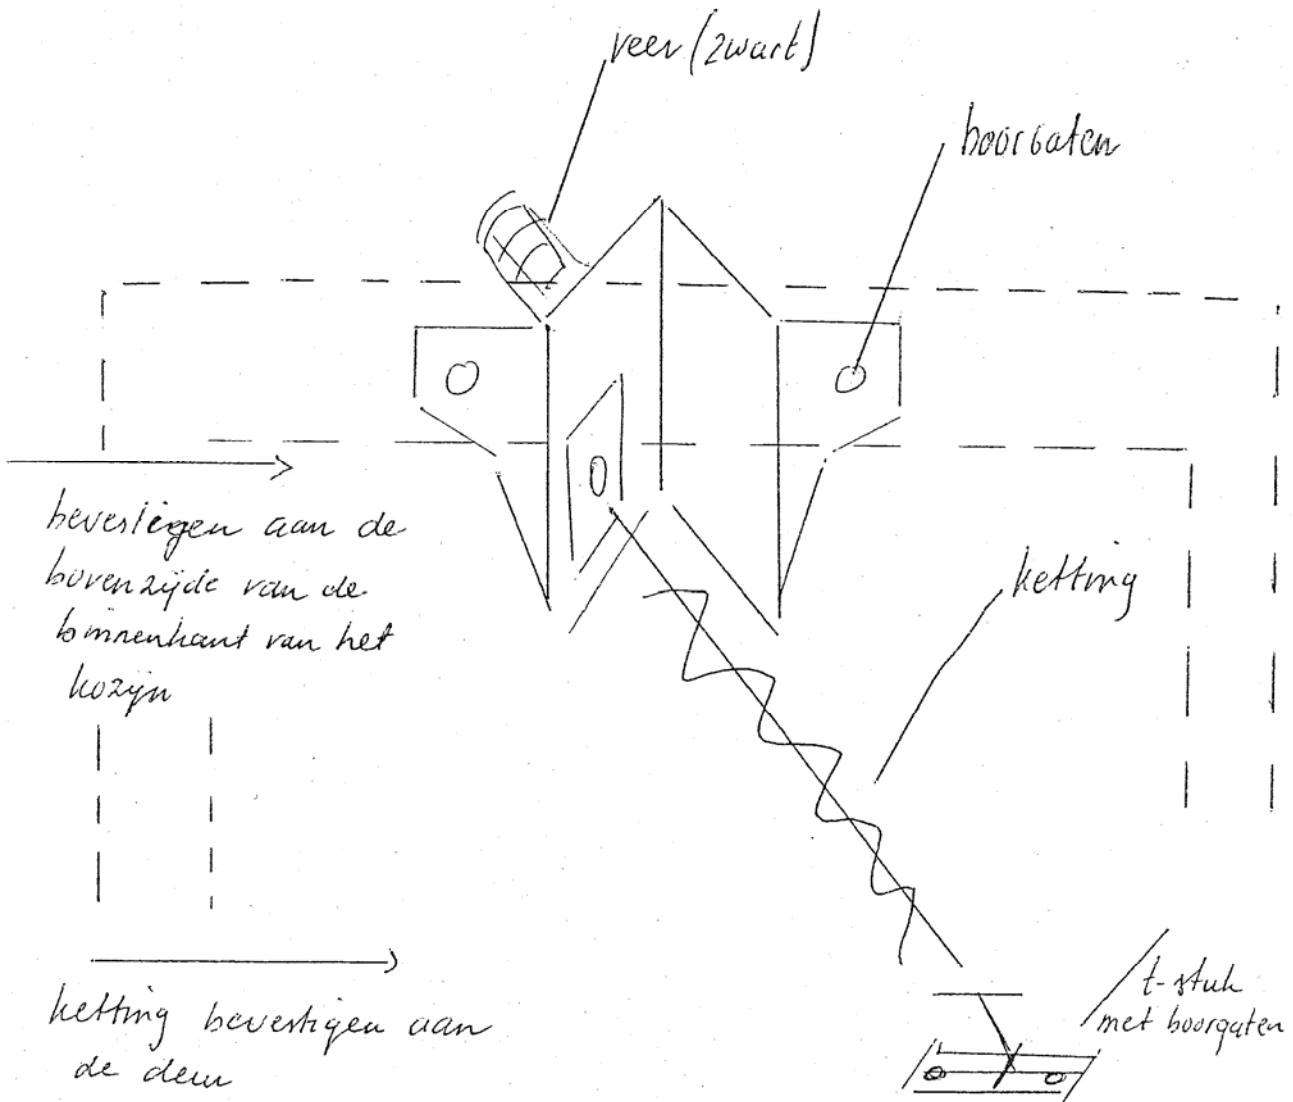 veer (zwart)
boorgaten
bevestigen aan de
bovenzijde van de
binnenkant van het
kozijn
ketting
ketting bevestigen aan
de deur
t-stuk
met boorgaten